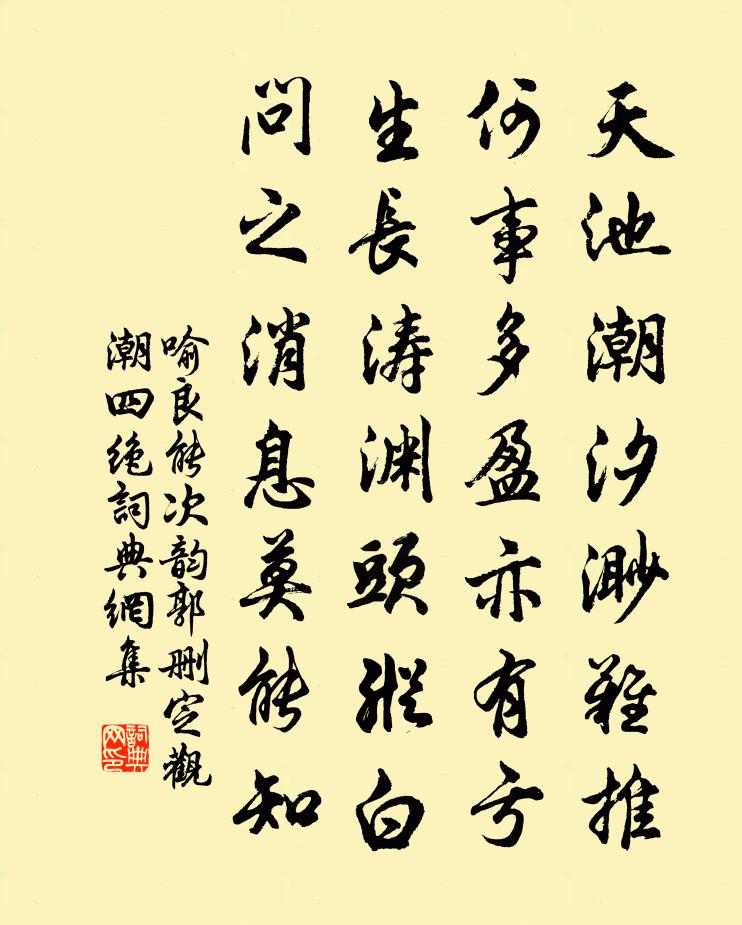 天池潮汐渺難推
何事多盈亦有亏
生長濤淵頭縱白
問之消息莫能知
喻良能次韵郭删定觀
潮四绝詞典網集
詞典
网印